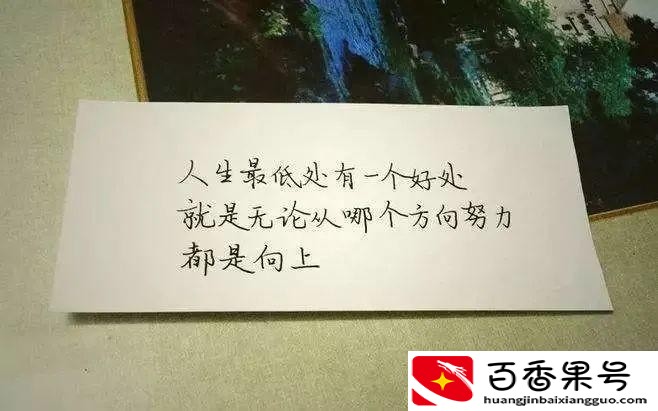 人生最低处有一个好处
就是无论从哪个方向努力
都是向上
百香果号
huangjinbaixiangguo.com